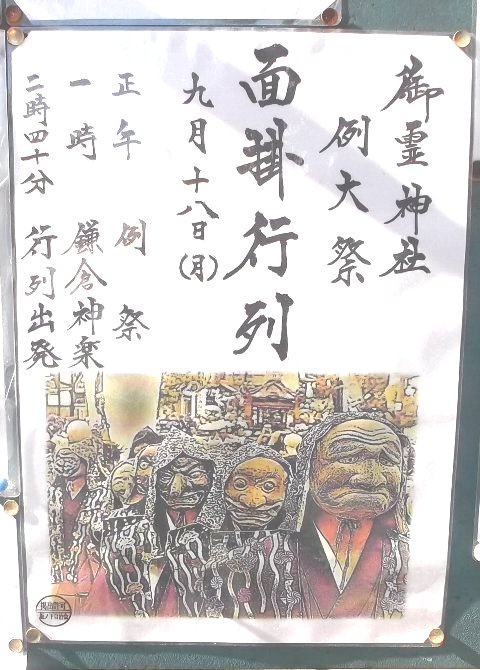 御霊神社
例大祭
面掛行列
九月十八日(月)
正午 例祭
一時 鎌倉神楽
二時四十分 行列出発
掲出許可